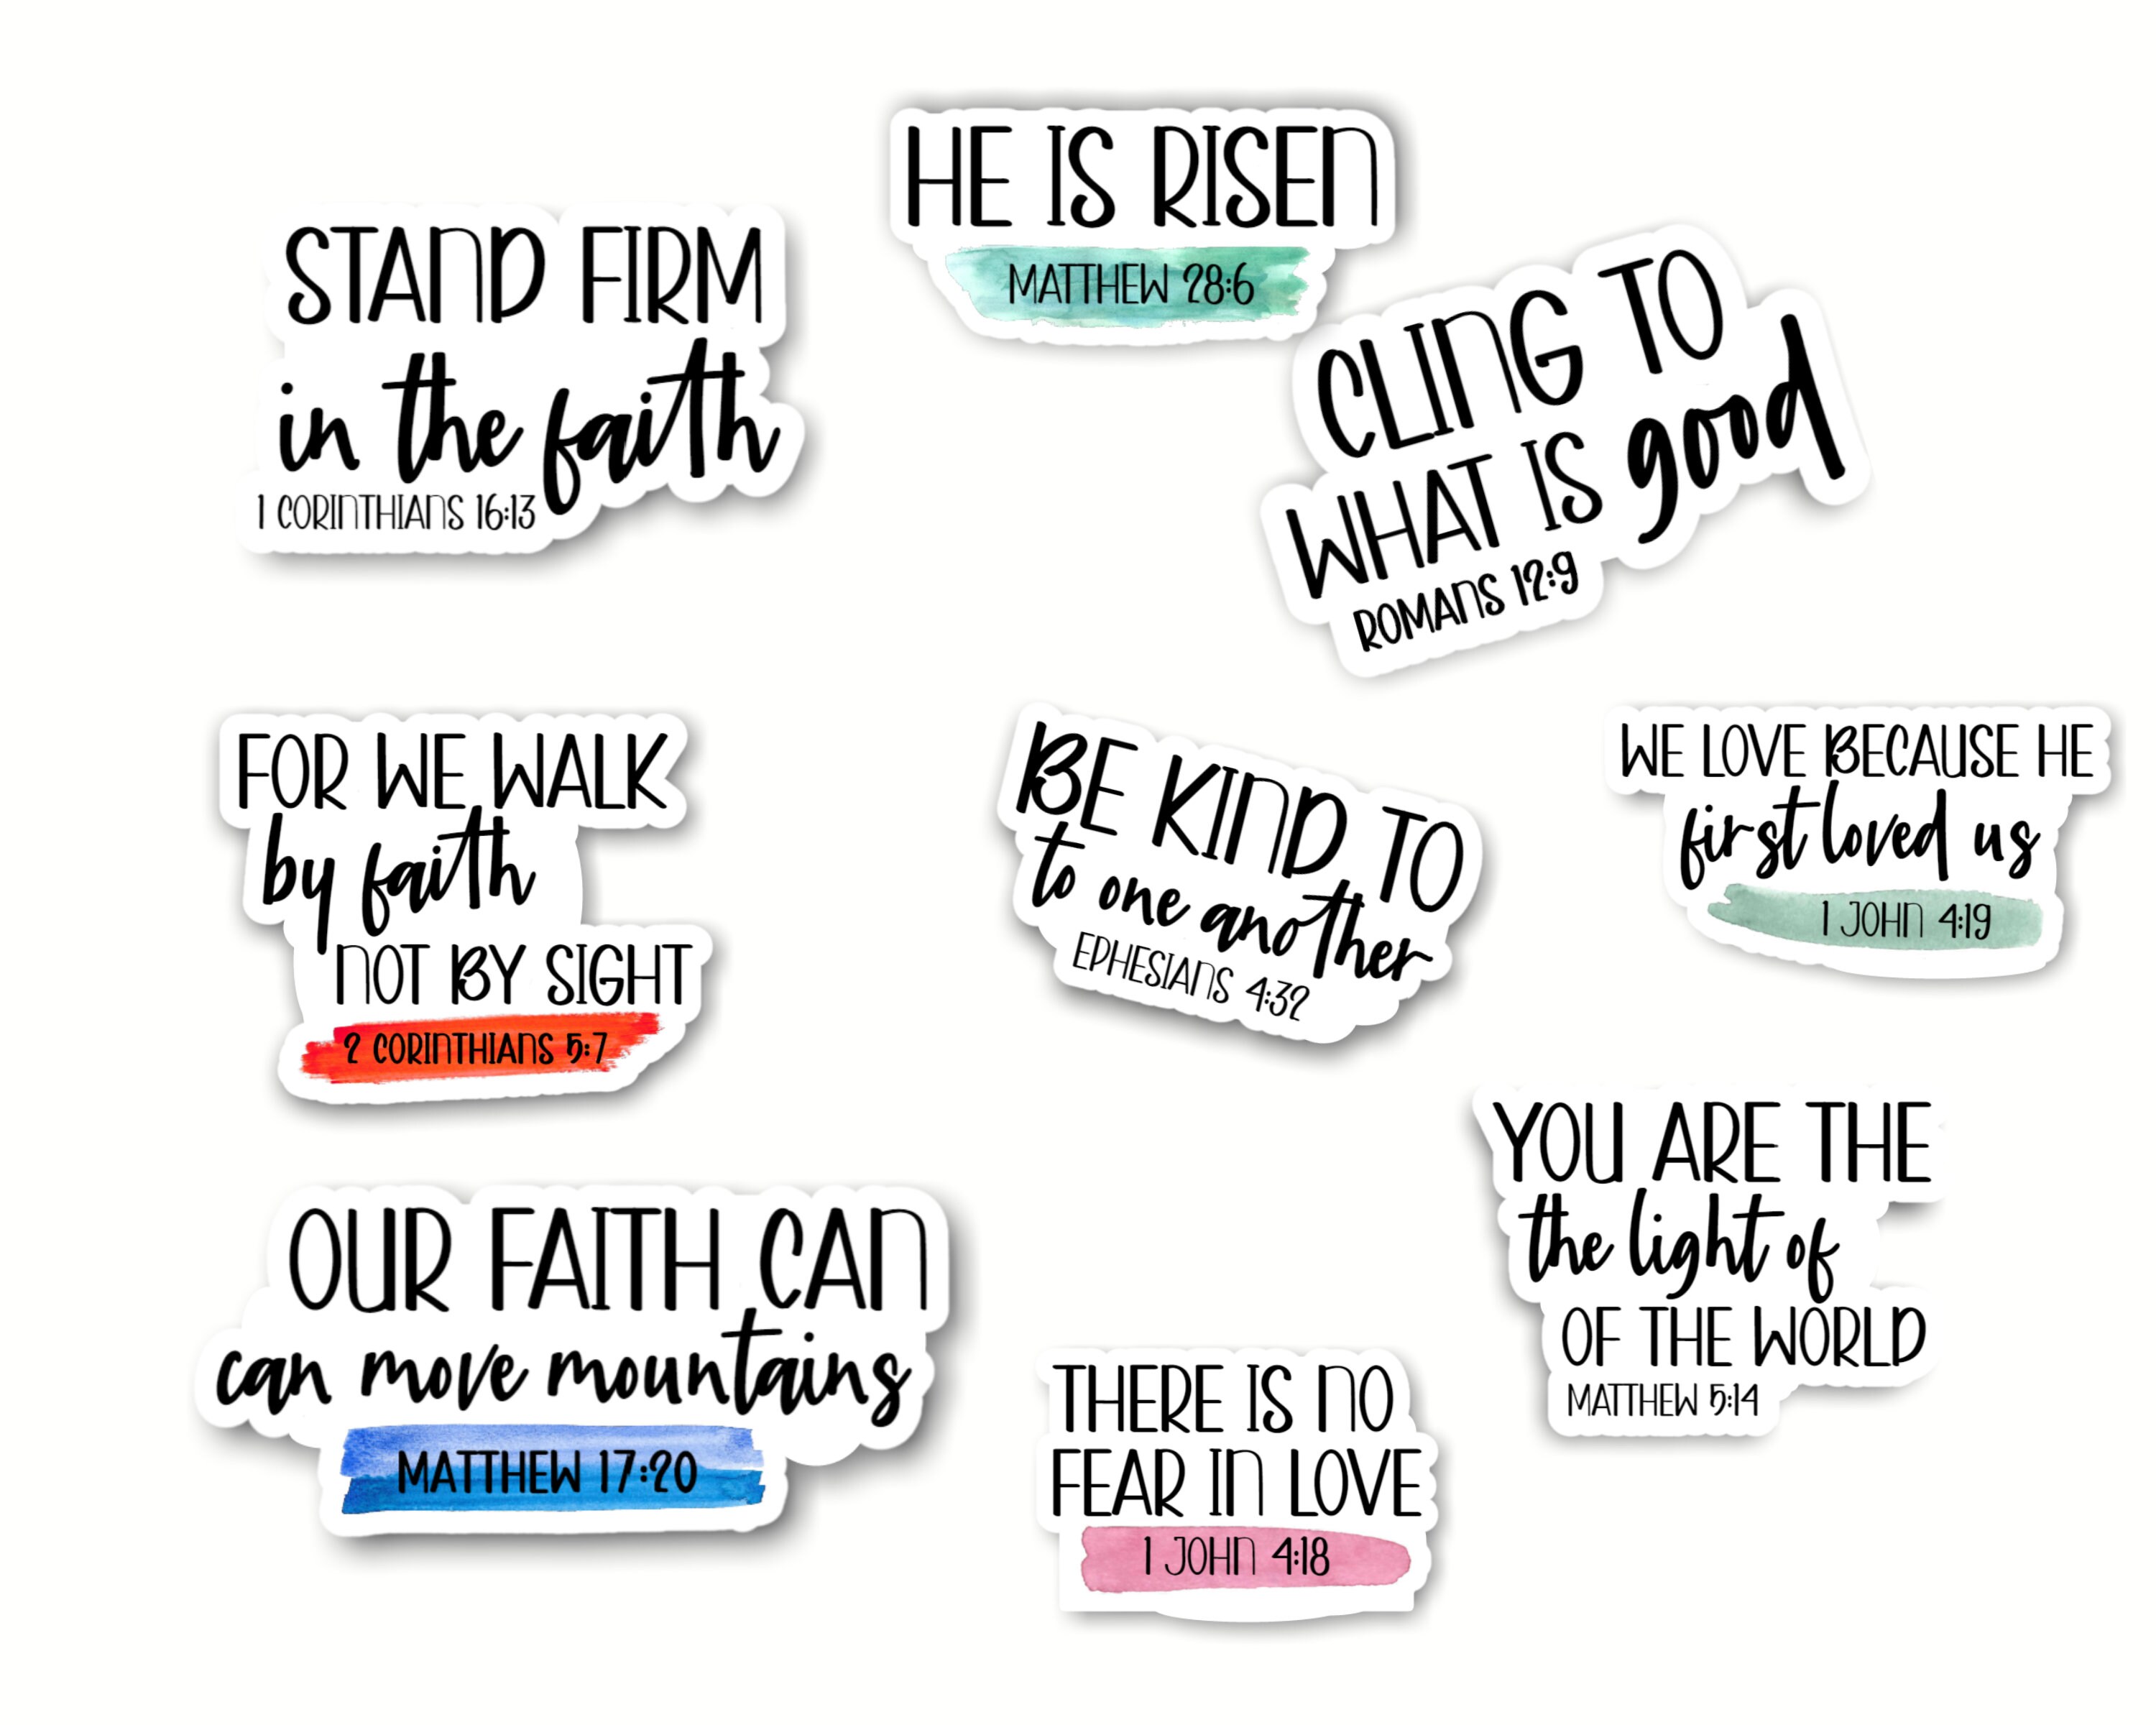 STAND FIRM
in the faith
1 CORINTHIANS 16:13
HE IS RISEN
MATTHEW 28:6
CLING TO
WHAT IS good
ROMANS 12:9
FOR WE WALK
by faith
NOT BY SIGHT
2 CORINTHIANS 5:7
BE KIND TO
to one another
EPHESIANS 4:32
WE LOVE BECAUSE HE
first loved us
1 JOHN 4:19
OUR FAITH CAN
can move mountains
MATTHEW 17:20
THERE IS NO
FEAR IN LOVE
1 JOHN 4:18
YOU ARE THE
the light of
OF THE WORLD
MATTHEW 5:14